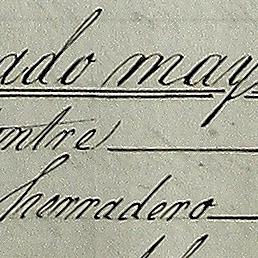 ado may
ntre
herradero